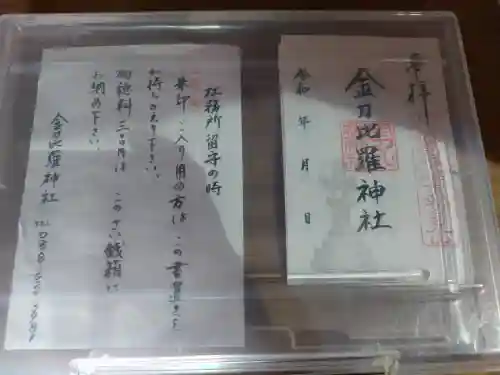 奉拝
金刀比羅神社
令和 年 月 日
社務所留守の時
朱印ご入り用の方は この書置きを
お持ちかえり下さい。
初穂料三百円は このさい銭箱に
お納め下さい。
金刀比羅神社